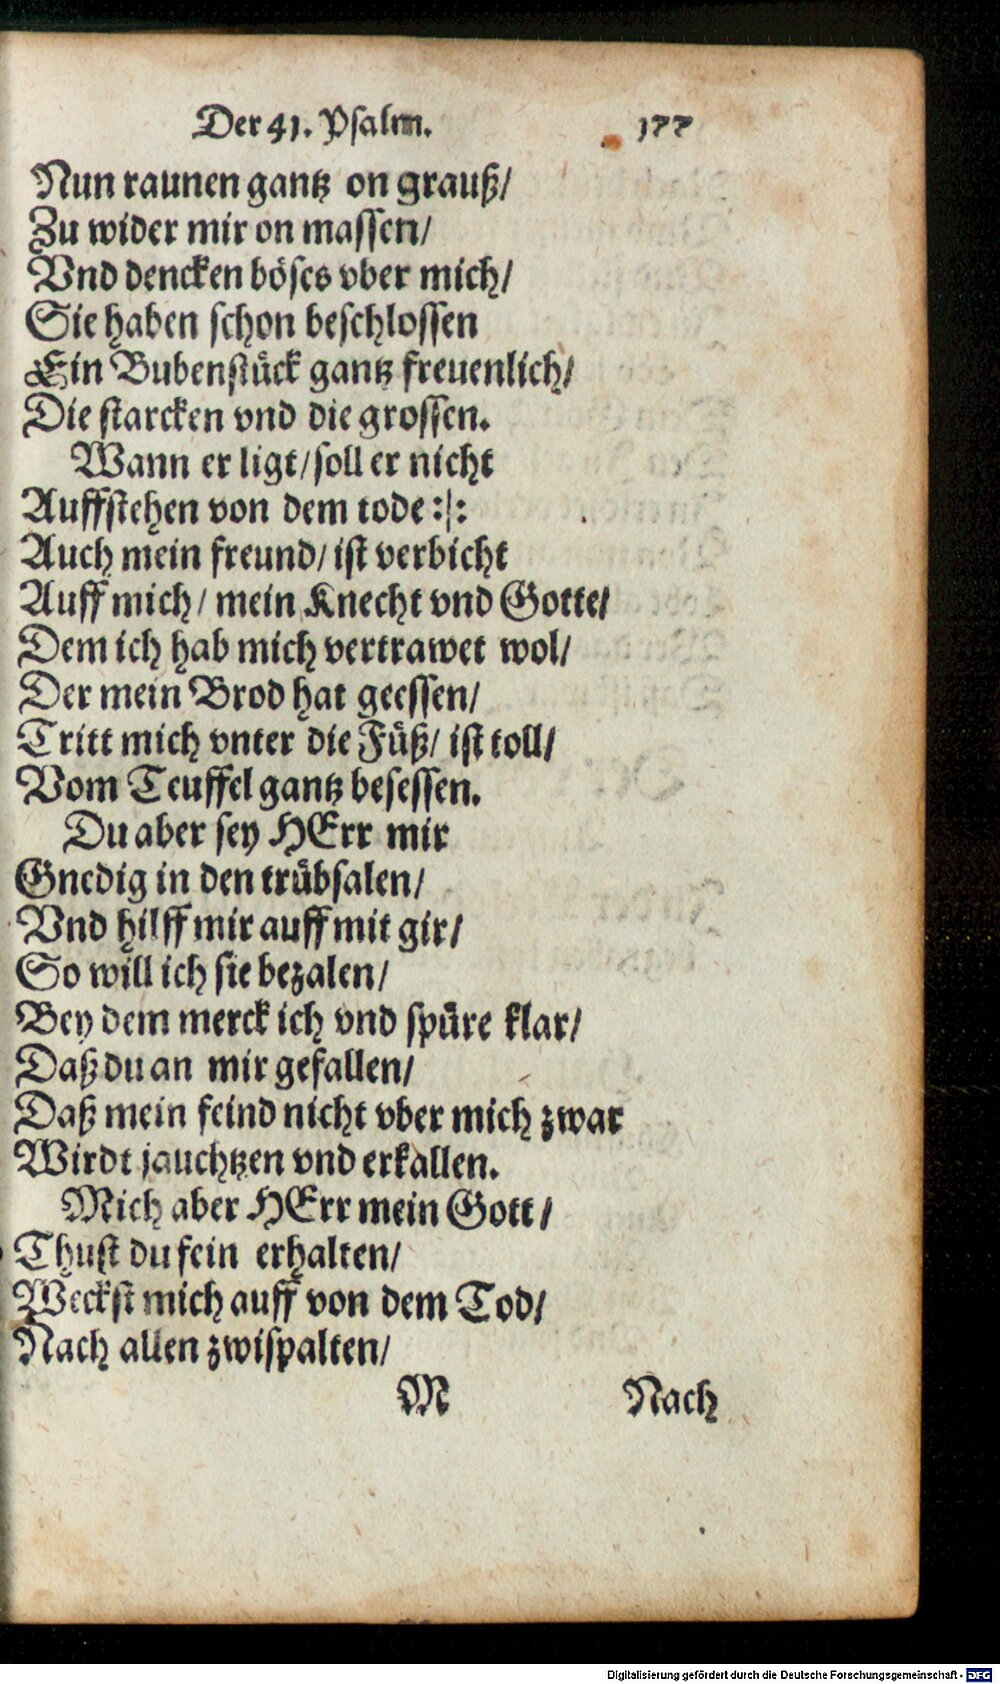 Der 41. Psalm. 177
Nun raunen gantz on grauß/
Zu wider mir on massen/
Vnd dencken böses vber mich/
Sie haben schon beschlossen
Ein Bubenstück gantz freuenlich/
Die starcken vnd die grossen.
Wann er ligt/ soll er nicht
Auffstehen von dem tode :|:
Auch mein freund/ ist verbicht
Auff mich/ mein Knecht vnd Gotte/
Dem ich hab mich vertrawet wol/
Der mein Brod hat geessen/
Tritt mich vnter die Füß/ ist toll/
Vom Teuffel gantz besessen.
Du aber sey HErr mir
Gnedig in den trübsalen/
Vnd hilff mir auff mit gir/
So will ich sie bezalen/
Bey dem merck ich vnd spüre klar/
Daß du an mir gefallen/
Daß mein feind nicht vber mich zwar
Wirdt jauchtzen vnd erkallen.
Mich aber HErr mein Gott/
Thust du fein erhalten/
Weckst mich auff von dem Tod/
Nach allen zwispalten/
M Nach
Digitalisierung gefördert durch die Deutsche Forschungsgemeinschaft - DFG